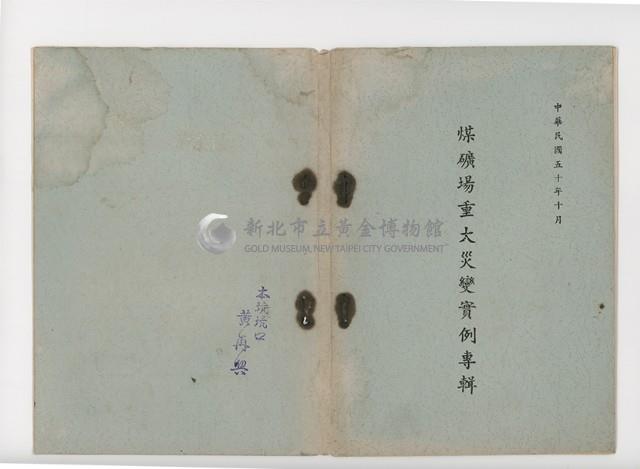 中華民國五十年十月
煤礦場重大災變實例專輯
新北市立黃金博物館
GOLD MUSEUM, NEW TAIPEI CITY GOVERNMENT
本礦坑口
黃再興